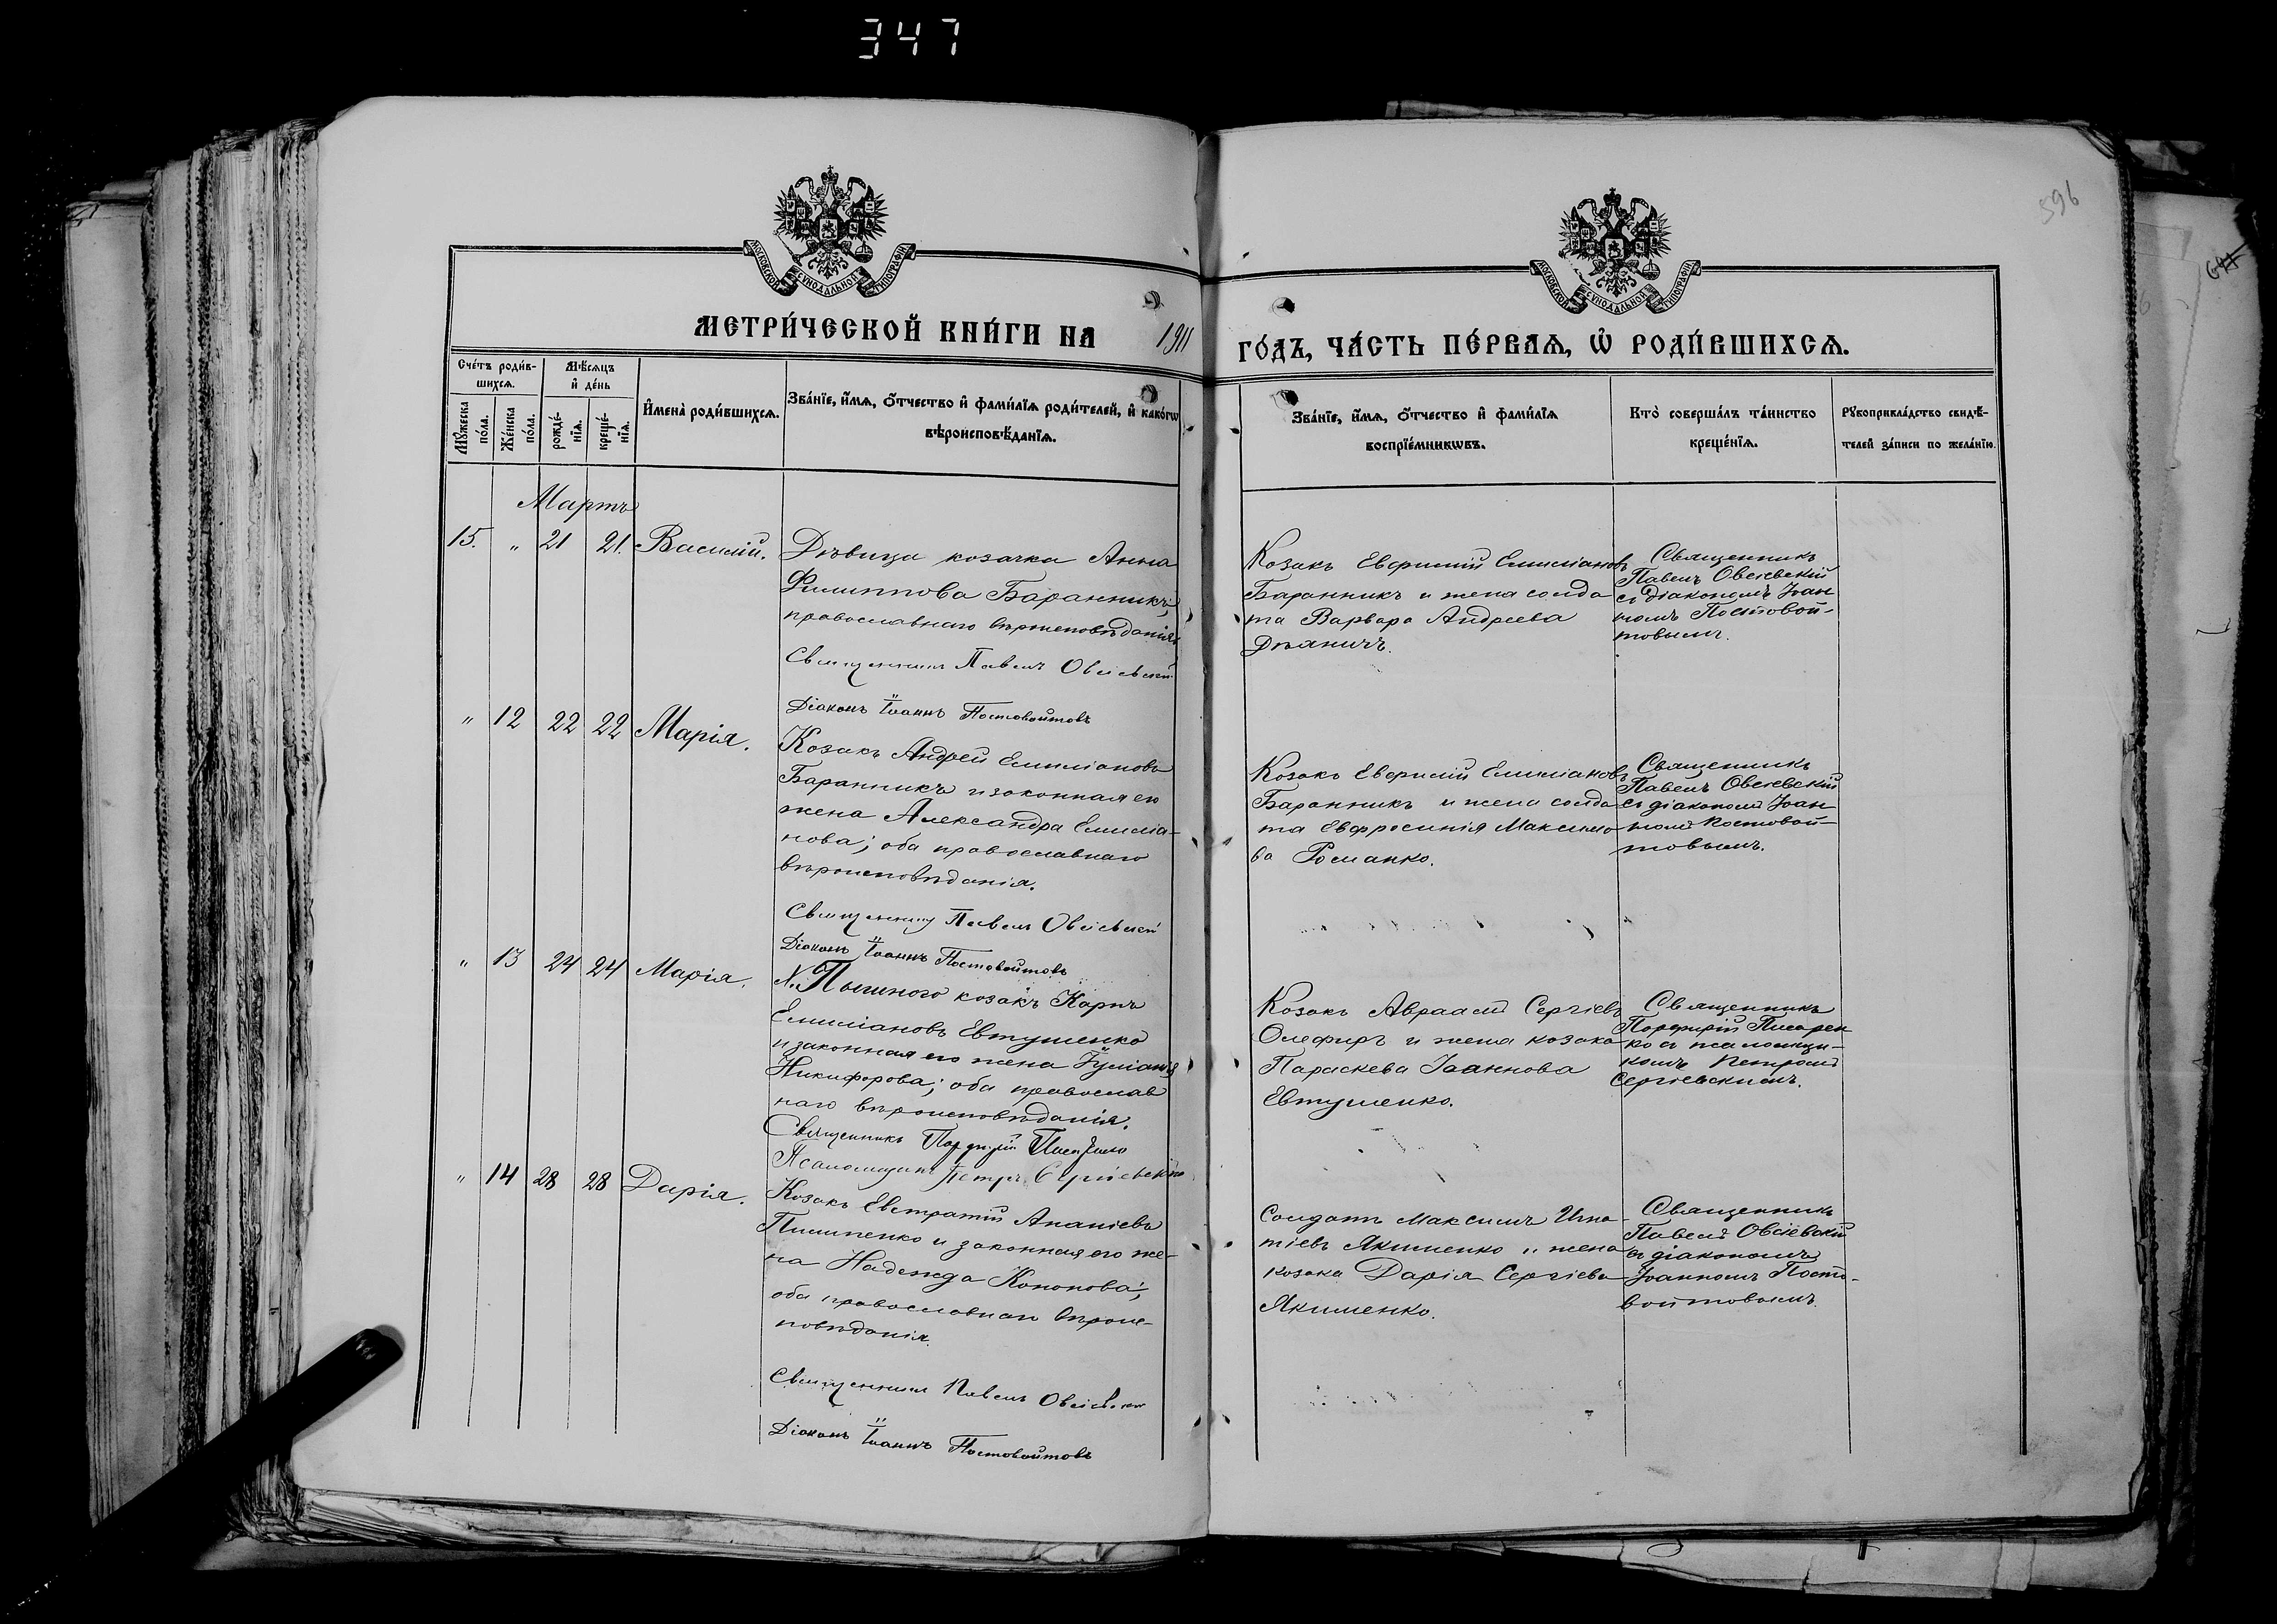 347
596
МОСКОВСКОЙ СУНОДАЛЬНОЙ ТИПОГРАФІИ
МОСКОВСКОЙ СУНОДАЛЬНОЙ ТИПОГРАФІИ
МЕТРИ́ЧЕСКОЙ КНИ́ГИ НА 1911 ГО́ДЪ, ЧА́СТЬ ПЕ́РВАЯ, Ѡ҆ РОДИ́ВШИХСЯ.
Сче́тъ роди́в-
шихся.
Мꙋ́жеска по́ла.
Же́нска по́ла.
Мѣ́сяцъ
и҆ де́нь
рожде́-
нїя.
креще́-
нїя.
И҆мена̀ роди́вшихся.
Зва́нїе, и҆́мя, ѻ҆́тчество и҆ фами́лїя роди́телей, и҆ како́гѡ
вѣроисповѣ́данїя.
Зва́нїе, и҆́мя, ѻ҆́тчество и҆ фами́лїя
воспрїе́мникѡвъ.
Кто̀ соверша́лъ та́инство
креще́нїя.
Рꙋкоприкла́дство свидѣ́-
телей за́писи по жела́нїю.
Мартъ
15. " 21 21. Василій.
Дѣвица козачка Анна
Филиппова Баранникъ,
православнаго вѣроисповѣданія
Священникъ Павелъ Овсіевскій
Діаконъ Іоаннъ Постовойтовъ
Козакъ Евфимій Емиліановъ
Баранникъ и жена солда
та Варвара Андреева
Священникъ
Павелъ Овсіевскій
съ діакономъ Іоан
номъ Постовой-
товымъ.
" 12 22 22 Марія.
Козакъ Андрей Емиліановъ
Баранникъ и законная его
жена Александра Емилiа-
нова; оба православнаго
вѣроисповѣданія.
Священникъ Павелъ Овсіевскій
Діаконъ Іоаннъ Постовойтовъ
Козакъ Евфимій Емиліановъ
Баранникъ и жена солда
та Евфросинія Максимо
ва Романко.
Священникъ
Павелъ Овсіевскій
съ діакономъ Іоан
номъ Постовой-
товымъ.
" 13 24 24 Марія.
козакъ Карпъ
Емиліановъ Евтушенко
и законная его жена Іуліанія
Никифорова; оба православ
наго вѣроисповѣданія.
Священникъ Порфирій Писаренко
Псаломщикъ Петръ Сергіевскій
Козакъ Авраамъ Сергіевъ
Олефиръ и жена козака
Параскева Іоаннова
Евтушенко.
Священникъ
Порфирій Писарен
ко съ псаломщи-
комъ Петромъ
Сергіевскимъ.
" 14 28 28 Дарія.
Козакъ Евстратій Ананіевъ
Пилипенко и законная его же-
на Надежда Кононова;
оба православнаго вѣроис-
повѣданія.
Священникъ Павелъ Овсіевскій
Діаконъ Іоаннъ Постовойтовъ
Солдатъ Максимъ Игна-
тіевъ Якименко и жена
козака Дарія Сергіева
Якименко.
Священникъ
Павелъ Овсіевскій
съ діакономъ
Іоанномъ Посто-
войтовымъ.